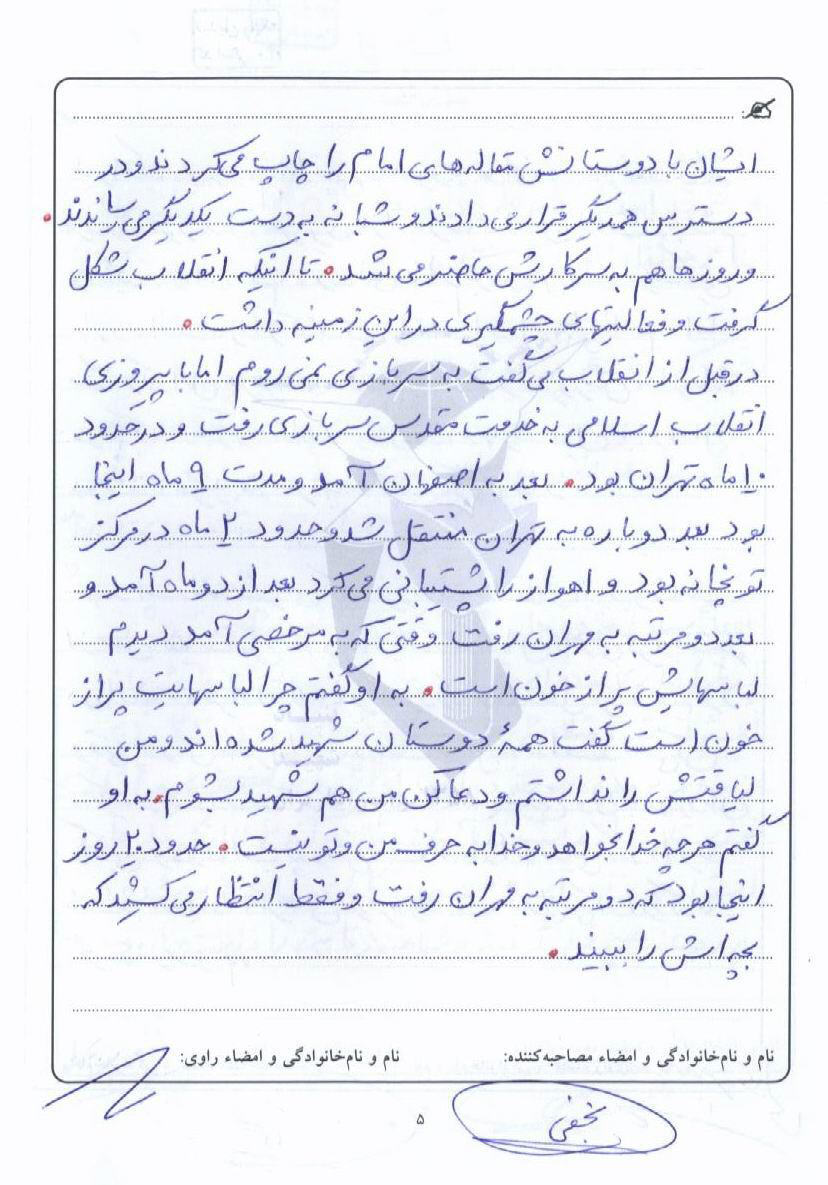 ایشان با دوستانش مقاله‌های امام را چاپ می‌کردند و در
دسترس همدیگر قرار می‌دادند و شبانه به دست یکدیگر می‌رساندند.
و روزها هم به سر کارش حاضر می‌شد. تا اینکه انقلاب شکل
گرفت و فعالیتهای چشمگیری در این زمینه داشت.
در قبل از انقلاب می‌گفت به سربازی نمی‌روم اما با پیروزی
انقلاب اسلامی به خدمت مقدس سربازی رفت و در حدود
۱۰ ماه تهران بود. بعد به اصفهان آمد و مدت ۹ ماه اینجا
بود بعد دوباره به تهران منتقل شد و حدود ۲ ماه در مرکز
توپخانه بود و اهواز را پشتیبانی می‌کرد بعد از دو ماه آمد و
بعد دو مرتبه به مهران رفت وقتی که به مرخصی آمد دیدم
لباسهایش پر از خون است. به او گفتم چرا لباسهایت پر از
خون است گفت همهٔ دوستان شهید شده‌اند و من
لیاقتش را نداشتم و دعا کن من هم شهید بشوم. به او
گفتم هر چه خدا بخواهد و خدا به حرف من و تو نیست. حدود ۲۰ روز
اینجا بود که دو مرتبه به مهران رفت و فقط انتظار می‌کشید که
بچه‌اش را ببیند.
نام و نام‌خانوادگی و امضاء مصاحبه‌کننده: نام و نام‌خانوادگی و امضاء راوی:
نجفی
۵